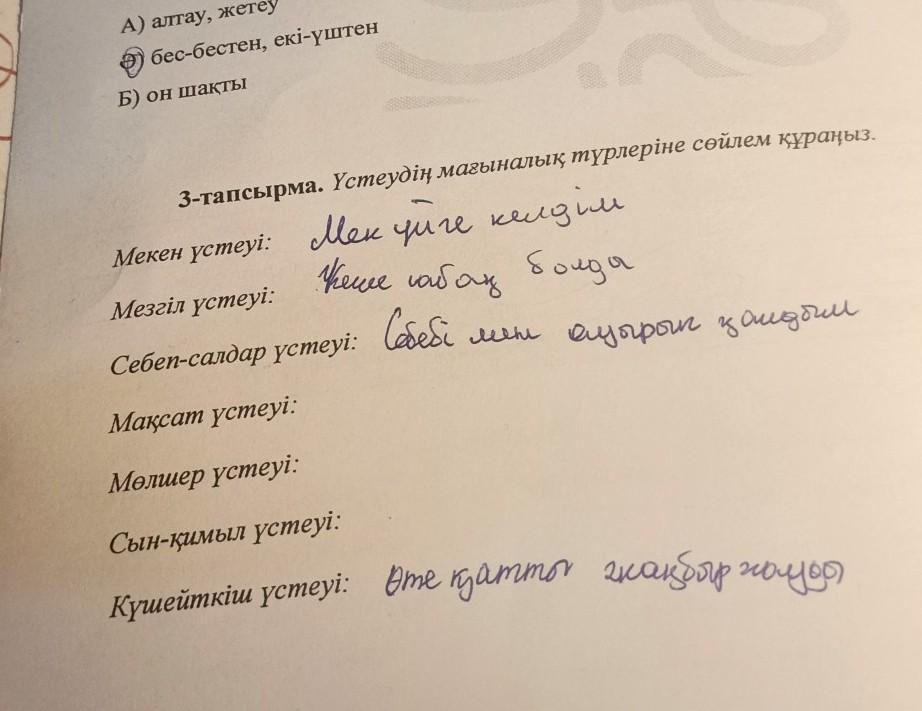 А) алтау, жетеу
Ә) бес-бестен, екі-үштен
Б) он шақты
3-тапсырма. Үстеудің мағыналық түрлеріне сөйлем құраңыз.
Мекен үстеуі: Мен үйге келдім
Мезгіл үстеуі: Кеше сабақ болды
Себеп-салдар үстеуі: Себебі мен ауырып қалдым
Мақсат үстеуі:
Мөлшер үстеуі:
Сын-қимыл үстеуі:
Күшейткіш үстеуі: Өте қатты жаңбыр жауды